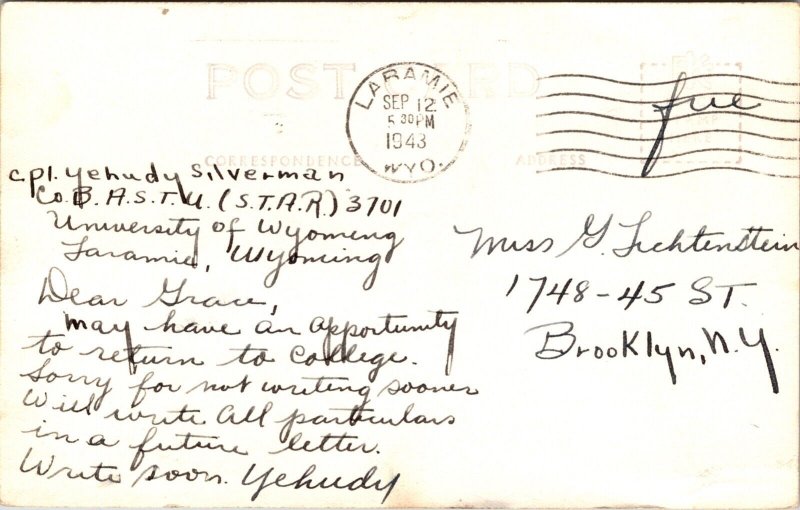 POST CARD
LARAMIE
SEP 12
5 30 PM
1943
WYO.
free
CORRESPONDENCE
ADDRESS
cpl. Yehudy Silverman
Co. B. A.S.T.U. (S.T.A.R) 3701
University of Wyomeng
Laramie, Wyoming
Dear Grace,
May have an opportunity
to return to college.
Sorry for not writing sooner
Will write all particulars
in a future letter.
Write soon. Yehudy
Miss G. Lichtenstein
1748-45 ST.
Brooklyn, N.Y.